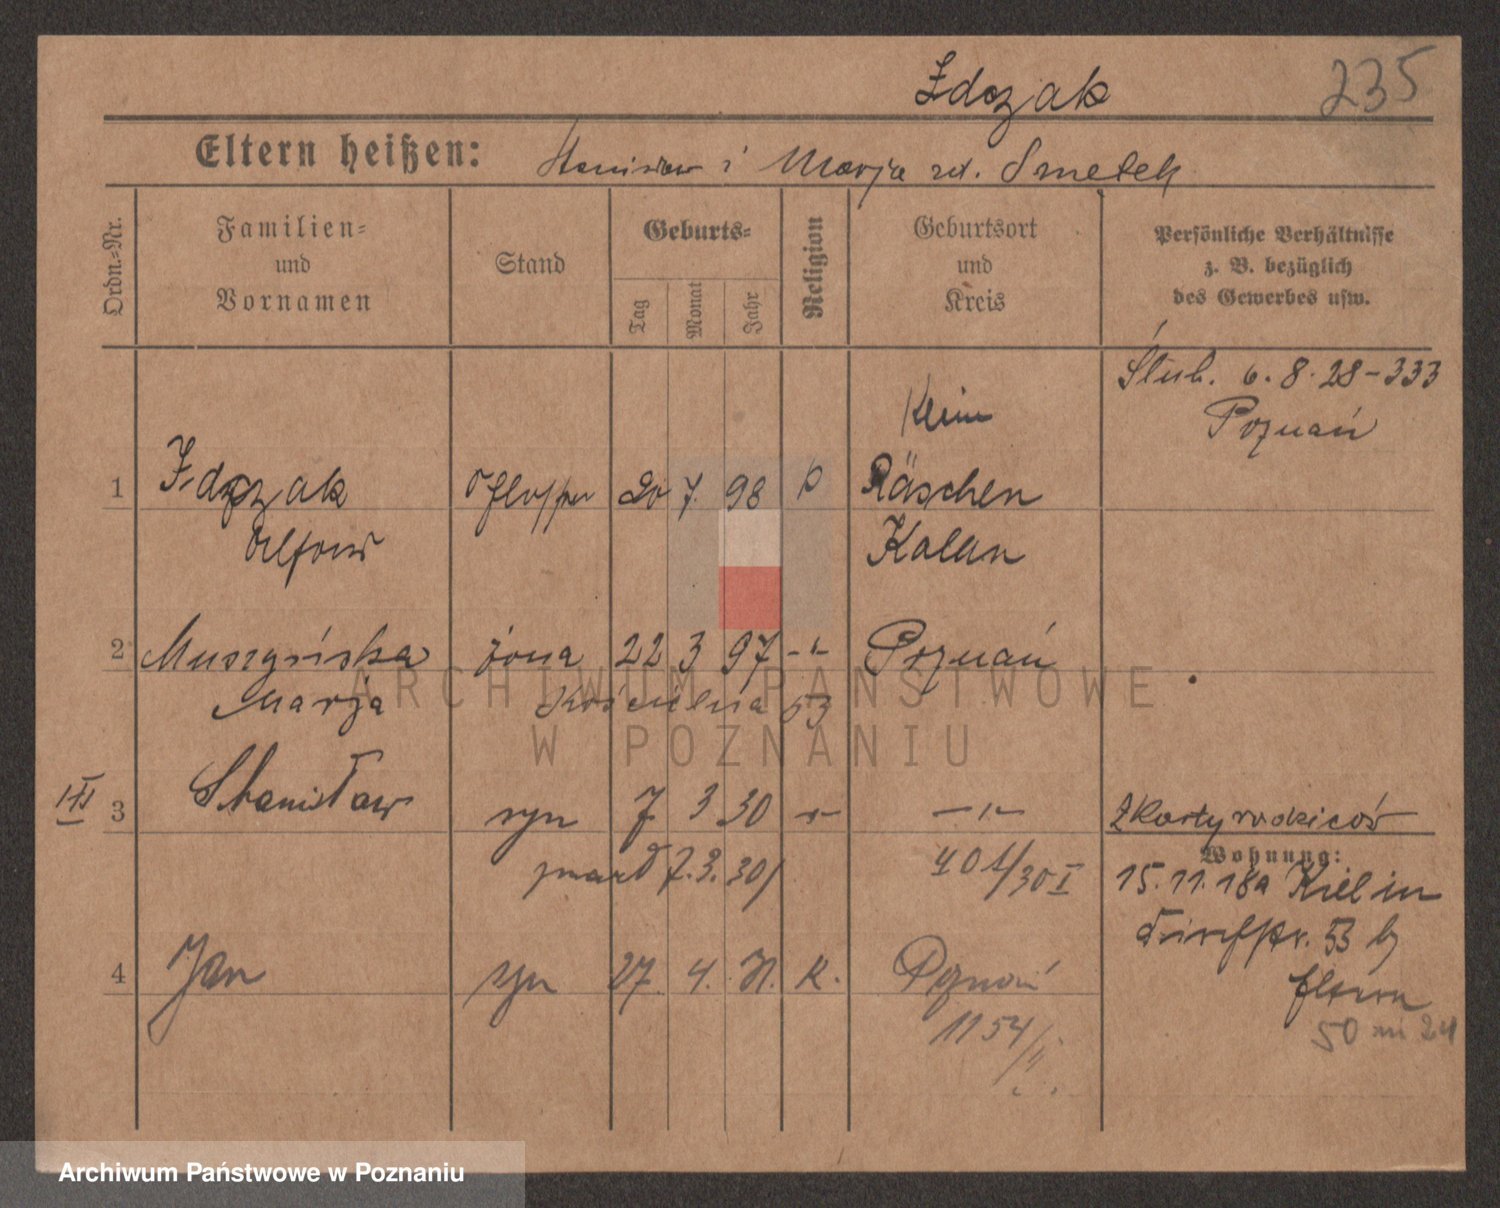 Zdczak
235
Eltern heißen: Stanisław i Marja zd. Smetek
Ordn.-Nr.
Familien-
und
Vornamen
Stand
Geburts-
Tag
Monat
Jahr
Religion
Geburtsort
und
Kreis
Persönliche Verhältnisse
z. B. bezüglich
des Gewerbes usw.
Ślub. 6.8.28-333
Poznań
Klein
1 Zdczak 20 7. 98 Räschen
Alfons Kalau
2 Muszyńska żona 22 3 97 -"- Poznań
Marja Kościelna 53
Stanisław
3 syn 7 3 30 -"- -"- Z karty rodziców
Wohnung:
zmarł 7.3.30 401/30 I
15.11.18a Kiel in
53 b
Eltern
4 Jan syn 27. 4. 31. k. Poznań
1154/
50
ARCHIWUM PAŃSTWOWE
W POZNANIU
Archiwum Państwowe w Poznaniu